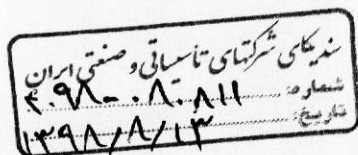 سندیکای شرکتهای تأسیساتی و صنعتی ایران
شماره: ۴.۹۸-۰۸.۸۱۱
تاریخ: ۱۳۹۸/۸/۱۳